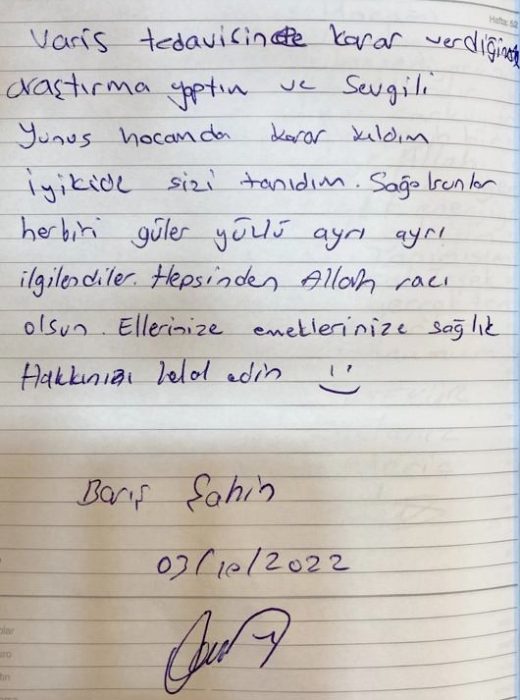 Hafta: 52
Varis tedavisinde karar verdiğimde
araştırma yaptım ve Sevgili
Yunus hocamda karar kıldım
iyikide sizi tanıdım. Sağolsunlar
herbiri güler yüzlü ayrı ayrı
ilgilendiler. Hepsinden Allah racı
olsun. Ellerinize emeklerinize sağlık
Hakkınızı helal edin
Barış Şahin
03/10/2022